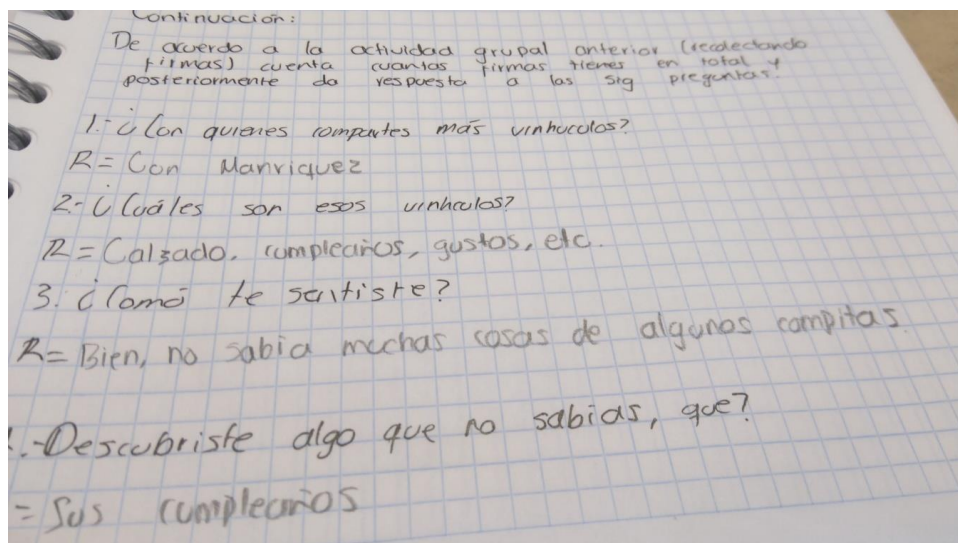 Continuación:
De acuerdo a la actividad grupal anterior (recolectando
firmas) cuenta cuantas firmas tienes en total y
posteriormente da respuesta a las sig preguntas.
1.- ¿Con quienes compartes más vinhuculos?
R= Con Manriquez
2.- ¿Cuáles son esos vinhculos?
R= Calzado, cumpleaños, gustos, etc.
3. ¿Comó te sentiste?
R= Bien, no sabia muchas cosas de algunos compitas.
.-Descubriste algo que no sabias, que?
= Sus cumpleaños